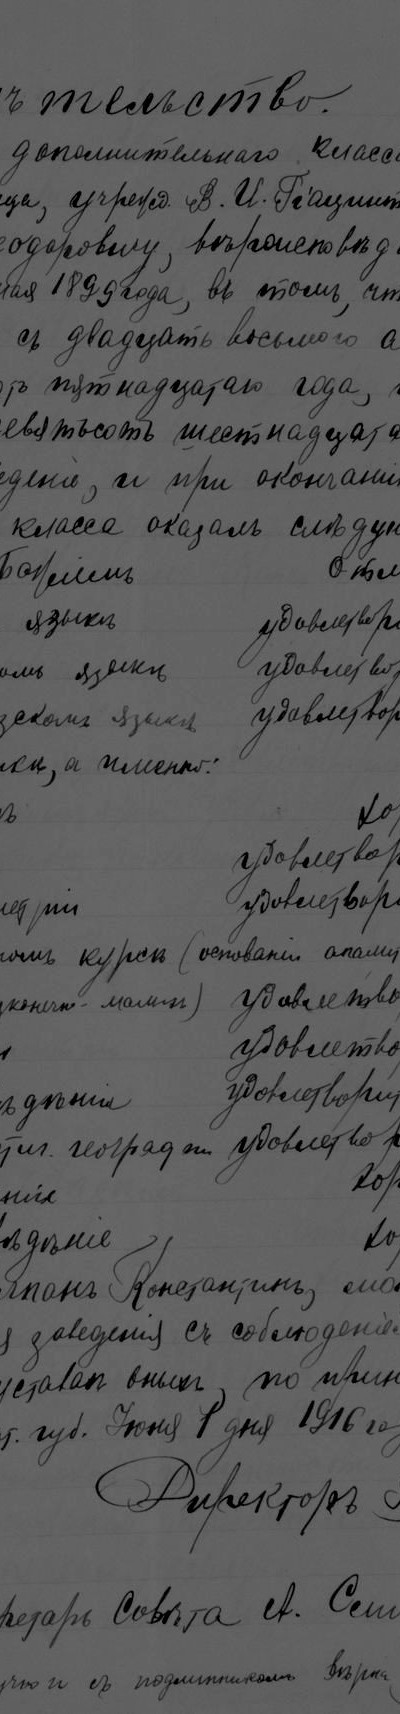 тельство.
дополнительнаго класса
ща, учрежд. В. И. Гіацинт
еодоровичу, вѣроисповѣд
мая 1899 года, въ томъ, чт
съ двадцать восьмого а
отъ пятнадцатаго года,
девятьсотъ шестнадцата
еденіе, и при окончаніи
класса оказалъ слѣдую
Отл
языкѣ удовлетвори
омъ языкѣ удовлетвор
зскомъ языкѣ удовлетвор
ики, а именно:
хор
удовлетвор
метріи удовлетвори
номъ курсѣ (основаніи анали
зконечно-малыхъ) удовлетво
удовлетво
ѣдѣнія удовлетворит
географіи удовлетвор
хор
вѣдѣніе хо
Константинъ, мо
я заведенія съ соблюденіе
уставахъ оныхъ, по прин
т. губ. Іюня 1 дня 1916 го
Директоръ
ретарь Совѣта А. Сем
съ подлинникомъ вѣрна